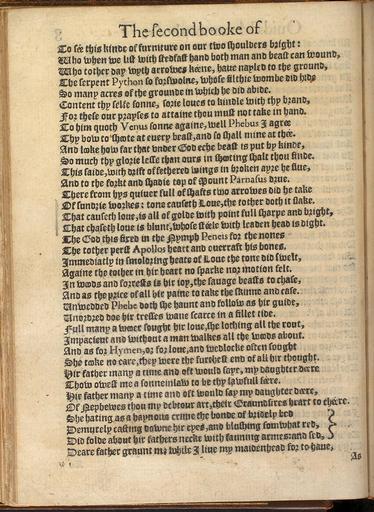 The second booke of
To sée this kinde of furniture on our two shoulders bright:
Who when we list with stedfast hand both man and beast can wound,
Who tother day wyth arrowes kéene, haue nayled to the ground,
The serpent Python so forswolne, whose filthie wombe did hide
So many acres of the grounde in which he did abide.
Content thy selfe sonne, sorie loues to kindle with thy brand,
For these our prayses to attaine thou must not take in hand.
To him quoth Venus sonne againe, well Phebus I agrée
Thy bow to shoote at euery beast, and so shall mine at thée.
And looke how far that vnder God eche beast is put by kinde,
So much thy glorie lesse than ours in shooting shalt thou finde.
This saide, with drift of fethered wings in broken ayre he flue,
And to the forkt and shadie top of Mount Parnasus drue.
There from hys quiuer full of shafts two arrowes did he take
Of sundrie workes: tone causeth Loue, the tother doth it slake.
That causeth loue, is all of golde with point full sharpe and bright,
That chaseth loue is blunt, whose stéele with leaden head is dight.
The God this fired in the Nymph Peneis for the nones
The tother perst Apollos heart and ouerraft his bones.
Immediatly in smoldring heate of Loue the tone did swelt,
Againe the tother in hir heart no sparke nor motion felt.
In woods and forrests is hir ioy, the sauage beasts to chase,
And as the price of all hir paine to take the skinne and case.
Unwedded Phebe doth she haunt and follow as hir guide,
Unordred doe hir tresses waue scarce in a fillet tide.
Full many a wooer sought hir loue, she lothing all the rout,
Impacient and without a man walkes all the woods about.
And as for Hymen, or for loue, and wedlocke often sought
She tooke no care, they were the furthest end of all hir thought.
Hir father many a time and oft would saye, my daughter déere
Thow owest me a sonneinlaw to be thy lawfull féere.
Hir father many a time and oft would say my daughter déere,
Of Nephewes thou my debtour art, their Graundsires heart to chéere.
She hating as a haynous crime the bonde of bridely bed
Demurely casting downe hir eyes, and blushing somwhat red,
Did folde about hir fathers necke with fauning armes: and sed,
Deare father graunt me while I liue my maidenhead for to haue,
As